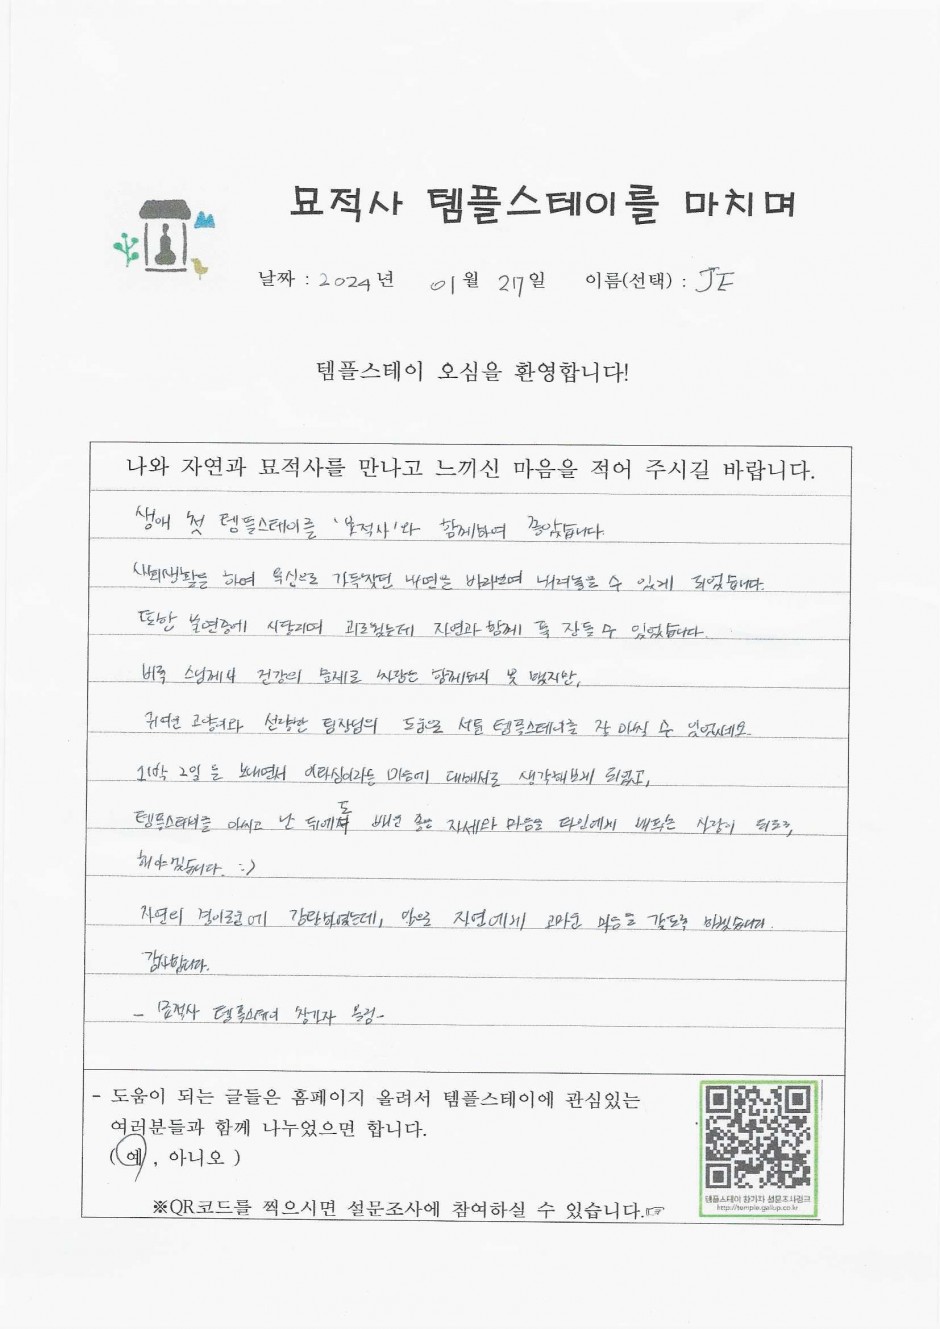 묘적사 템플스테이를 마치며
날짜 : 2024년 01월 27일 이름(선택) : JE
템플스테이 오심을 환영합니다!
나와 자연과 묘적사를 만나고 느끼신 마음을 적어 주시길 바랍니다.
생애 첫 템플스테이를 '묘적사'와 함께하여 좋았습니다.
사회생활을 하여 욕심으로 가득찼던 내면을 바라보며 내려놓을 수 있게 되었습니다.
또한 불면증에 시달리며 괴로웠는데 자연과 함께 푹 잠들 수 있었습니다.
비록 스님께서 건강의 문제로 차담은 함께하지 못 했지만,
귀여운 고양이와 선량한 팀장님의 도움으로 템플스테이를 잘 마칠 수 있었네요.
1박 2일을 보내면서 이타심이라는 마음에 대해서도 생각해보게 되었고,
템플스테이를 마치고 난 뒤에도 배운 좋은 자세와 마음을 타인에게 베푸는 사람이 되도록,
해야겠습니다. :)
자연의 경이로움에 감탄하였는데, 앞으로 자연에게 고마운 마음을 갖도록 하겠습니다.
감사합니다.
- 묘적사 템플스테이 참가자 올림-
- 도움이 되는 글들은 홈페이지 올려서 템플스테이에 관심있는
여러분들과 함께 나누었으면 합니다.
( 예 , 아니오 )
템플스테이 참가자 설문조사링크
http://temple.gallup.co.kr
※QR코드를 찍으시면 설문조사에 참여하실 수 있습니다.☞